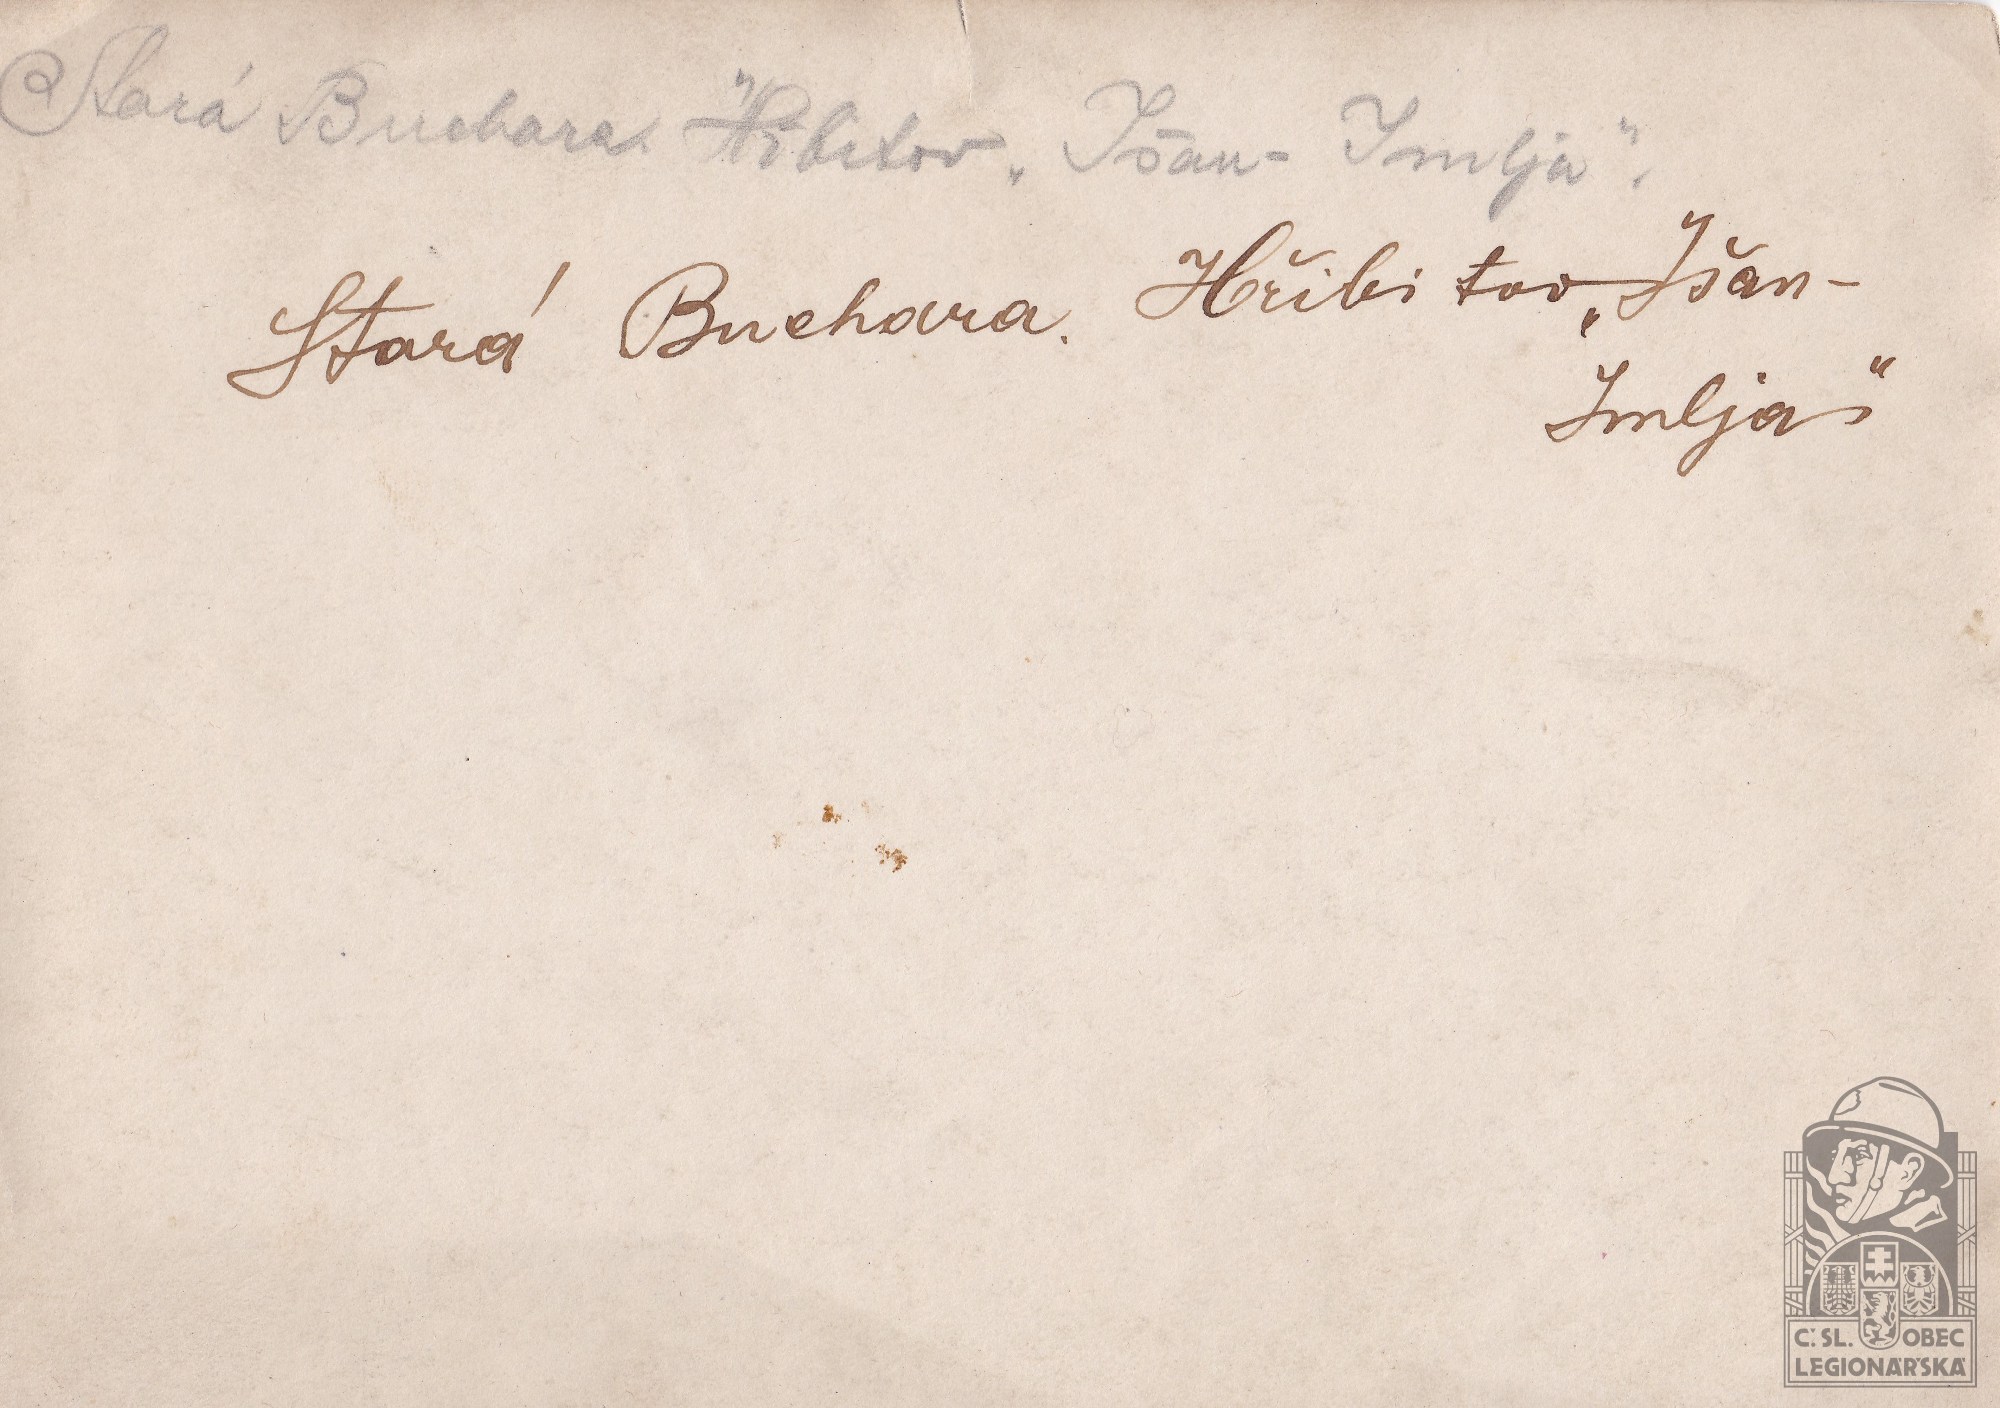 Stará Buchara. Hřbitov „Išan- Imlja".
Stará Buchara. Hřibitov „Išan-
Imlja"
Č. SL. OBEC
LEGIONÁŘSKÁ